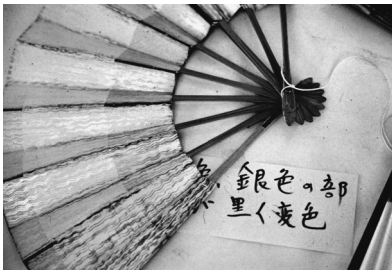 色、銀色の部
黒く変色